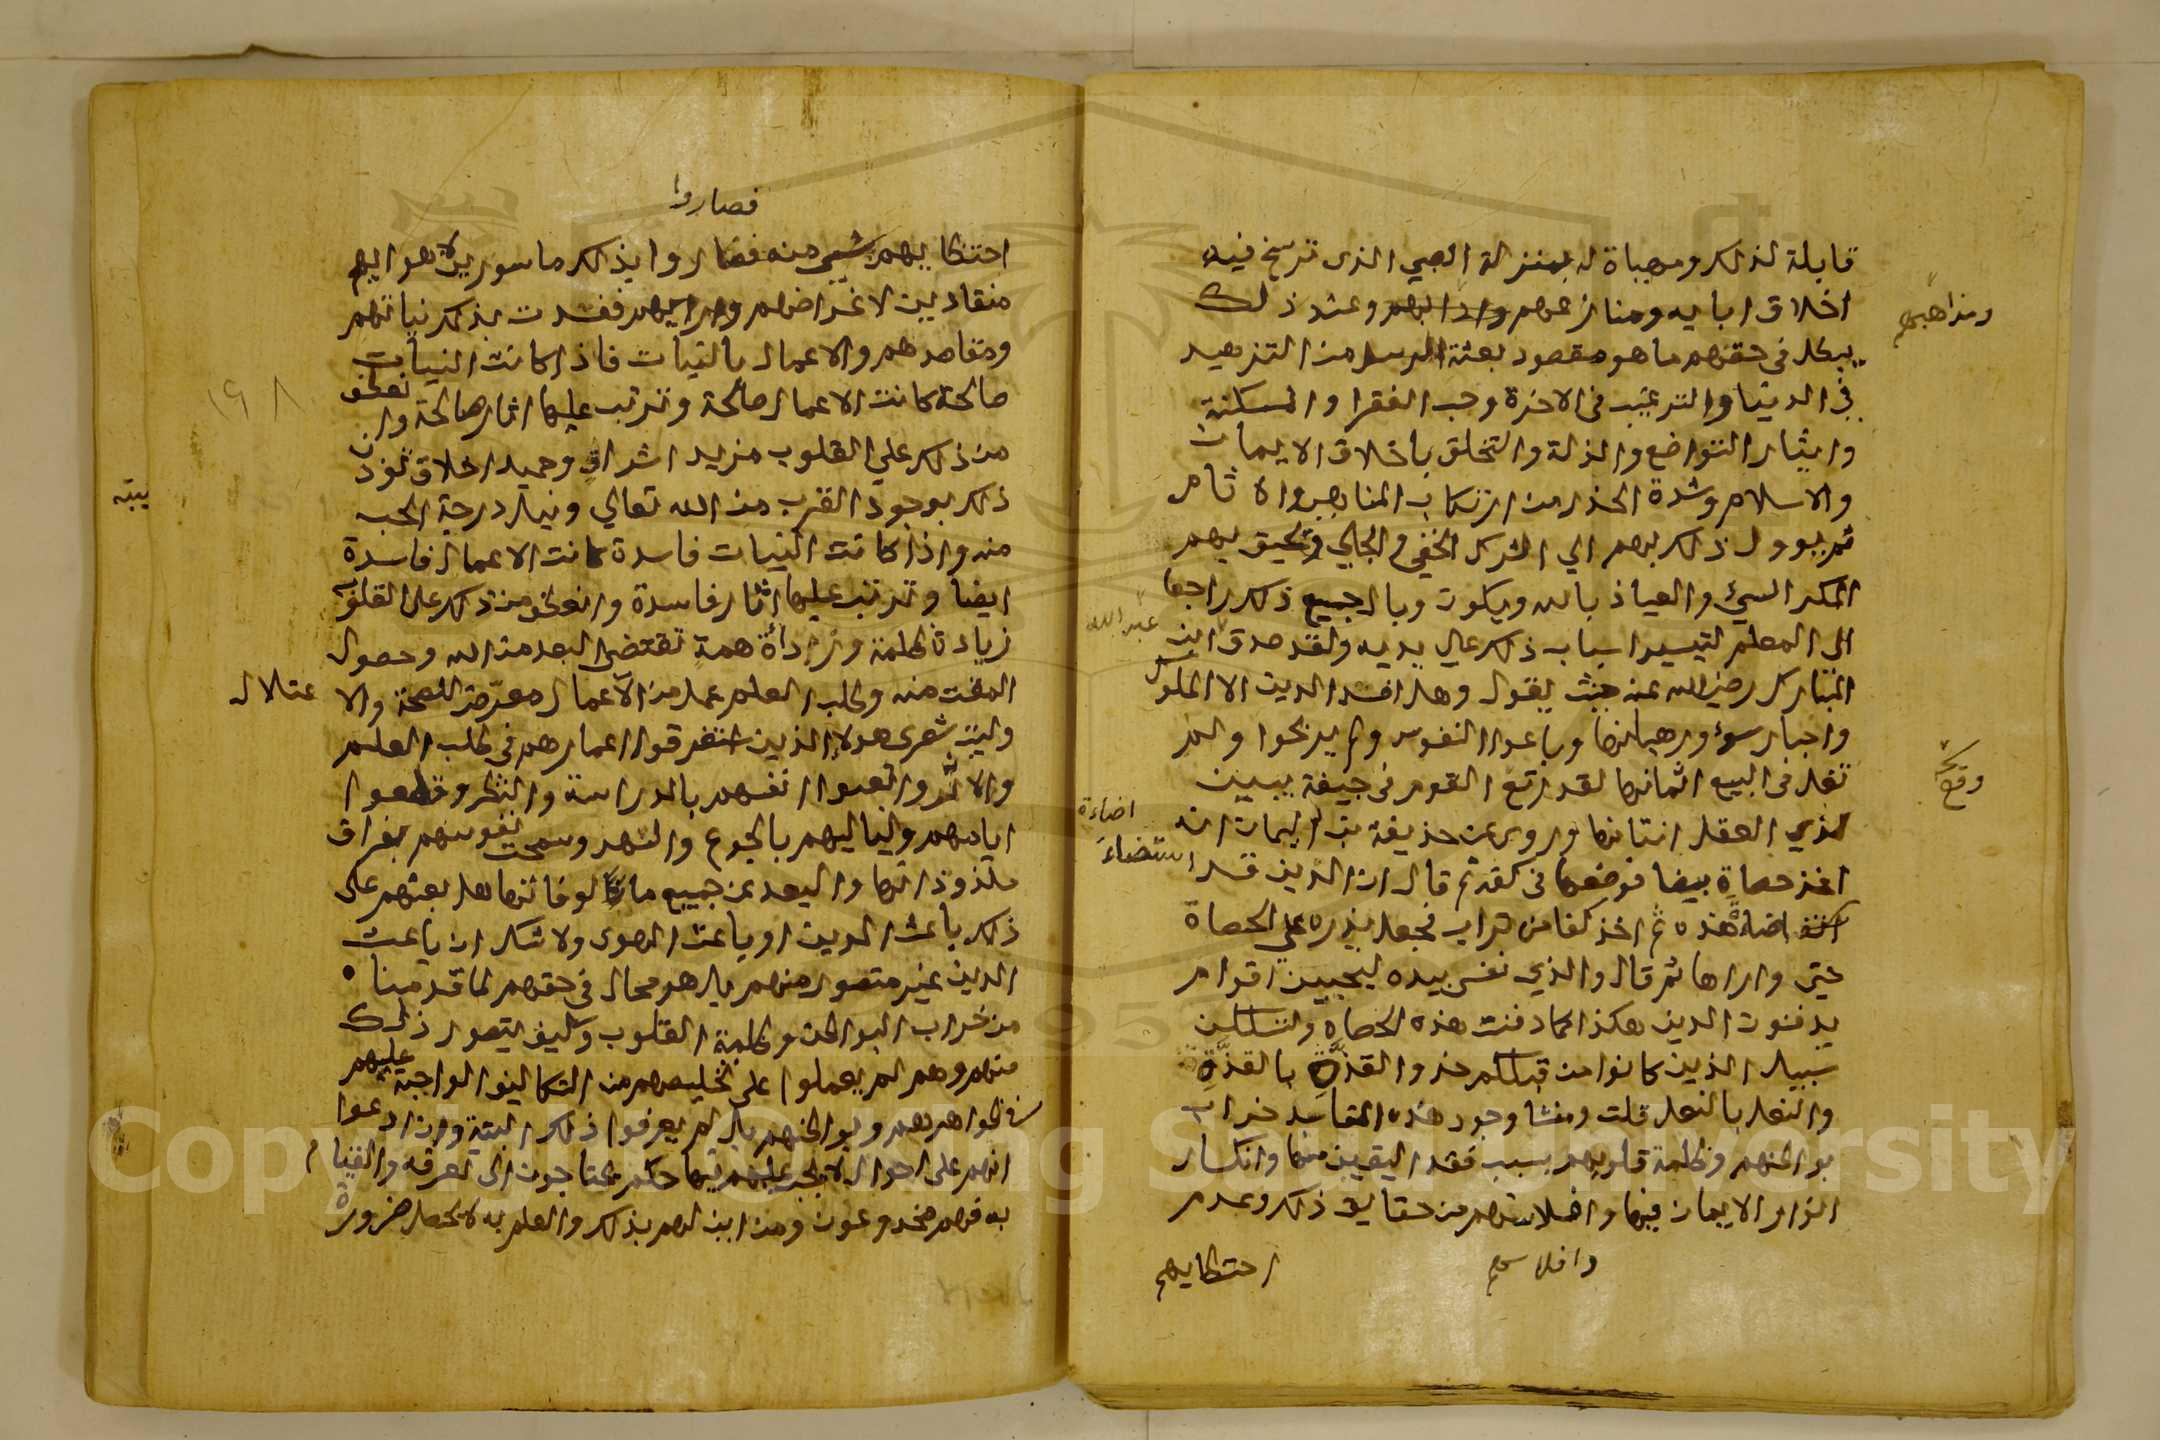 قابلة لذلك ومهياة له بمنزلة الصبي الذي ترسخ فيه
اخلاق ابايه ومنازعهم وارابهم وعند ذلك
ومذاهبهم
يبطل في حقهم ما هو مقصود بعثة الرسل من التزهيد
في الدنيا والترغيب في الاخرة وحب الفقرا والمسكنة
وايثار التواضع والذلة والتخلق باخلاق الايمان
والاسلام وشدة الحذر من ارتكاب المناهي والاثام
ثم يوول ذلك بهم الي الشرك الخفي والجلي وتحيق بهم
المكر السيئ والعياذ بالله ويكون وبال جميع ذلك راجعا
الى المعلم لتيسير اسباب ذلك علي يديه ولقد صدق ابن
عبد الله
المبارك رضي الله عنه حيث يقول وهل افسد الدين الا الملوك
واحبار سوء ورهبانها وباعوا النفوس ولم يربحوا ولم
تغل في البيع اثمانها لقد رتع القوم في جيفة يبين
وقع
لذي العقل انتانها وروى عن حذيفة بن اليمان انه
اخذ حصاة بيضا فوضعها في كفه ثم قال ان الدين قد استضاء
اضاءة
اضاة هذه ثم اخذ كفا من تراب فجعل يذره علي الحصاة
حتى واراها ثم قال والذي نفسي بيده ليجيين اقوام
يدفنون الدين هكذا كما دفنت هذه الحصاة ولتسلكن
سبيل الذين كانوا من قبلكم حذو القذة بالقذة
والنعل بالنعل قلت ومنشا وجود هذه المفاسد خراب
بواطنهم وظلمة قلوبهم بسبب فقد اليقين منها وانكسار
انوار الايمان فيها وافلاسهم من حقايق ذلك وعدم
وافلاسهم
احتظايهم
فصاروا
احتظايهم بشيئ منه فصاروا بذلك ماسورين لاهوايهم
منقادين لاغراضهم وارايهم ففسدت بذلك نياتهم
ومقاصدهم والاعمال بالنيات فاذا كانت النيات
صالحة كانت الاعمال صالحة وترتب عليها اثار صالحة وانعطف
من ذلك علي القلوب مزيد اشراق وحميد اخلاق تؤذن
ذلك بوجود القرب من الله تعالي ونيل درجة الحب
منه واذا كانت النيات فاسدة كانت الاعمال فاسدة
ايضا وترتب عليها اثار فاسدة وانعطف من ذلك على القلوب
زيادة ظلمة ورداءة همة تقتضي البعد من الله وحصول
المقت منه وطلب العلم عمل من الاعمال معرضة للصحة والا عتلال
وليت شعري هولا الذين استغرقوا اعمارهم في طلب العلم
والاثر واتعبوا انفسهم بالدراسة والنظر وقطعوا
ايامهم ولياليهم بالجوع والسهر وسمحت نفوسهم بفراق
ملذوذاتها والبعد عن جميع مالوفاتها هل بعثهم على
ذلك باعث الدين او باعث الهوى ولا شك ان باعث
الدين غير متصور منهم بل هو محال في حقهم لما قدمنا
من خراب البواطن وظلمة القلوب وكيف يتصور ذلك
منهم وهم لم يعملوا على تخليصهم من التكاليف الواجبة عليهم
في ظواهرهم وبواطنهم بل لم يعرفوا ذلك البتة وان ادعوا
انهم على احوال لا يجب عليهم فيها حكم يحتاجون الى تعرفه والقيام
به فهم مخدوعون ومن اين لهم بذلك والعلم به لا يحصل ضرورة